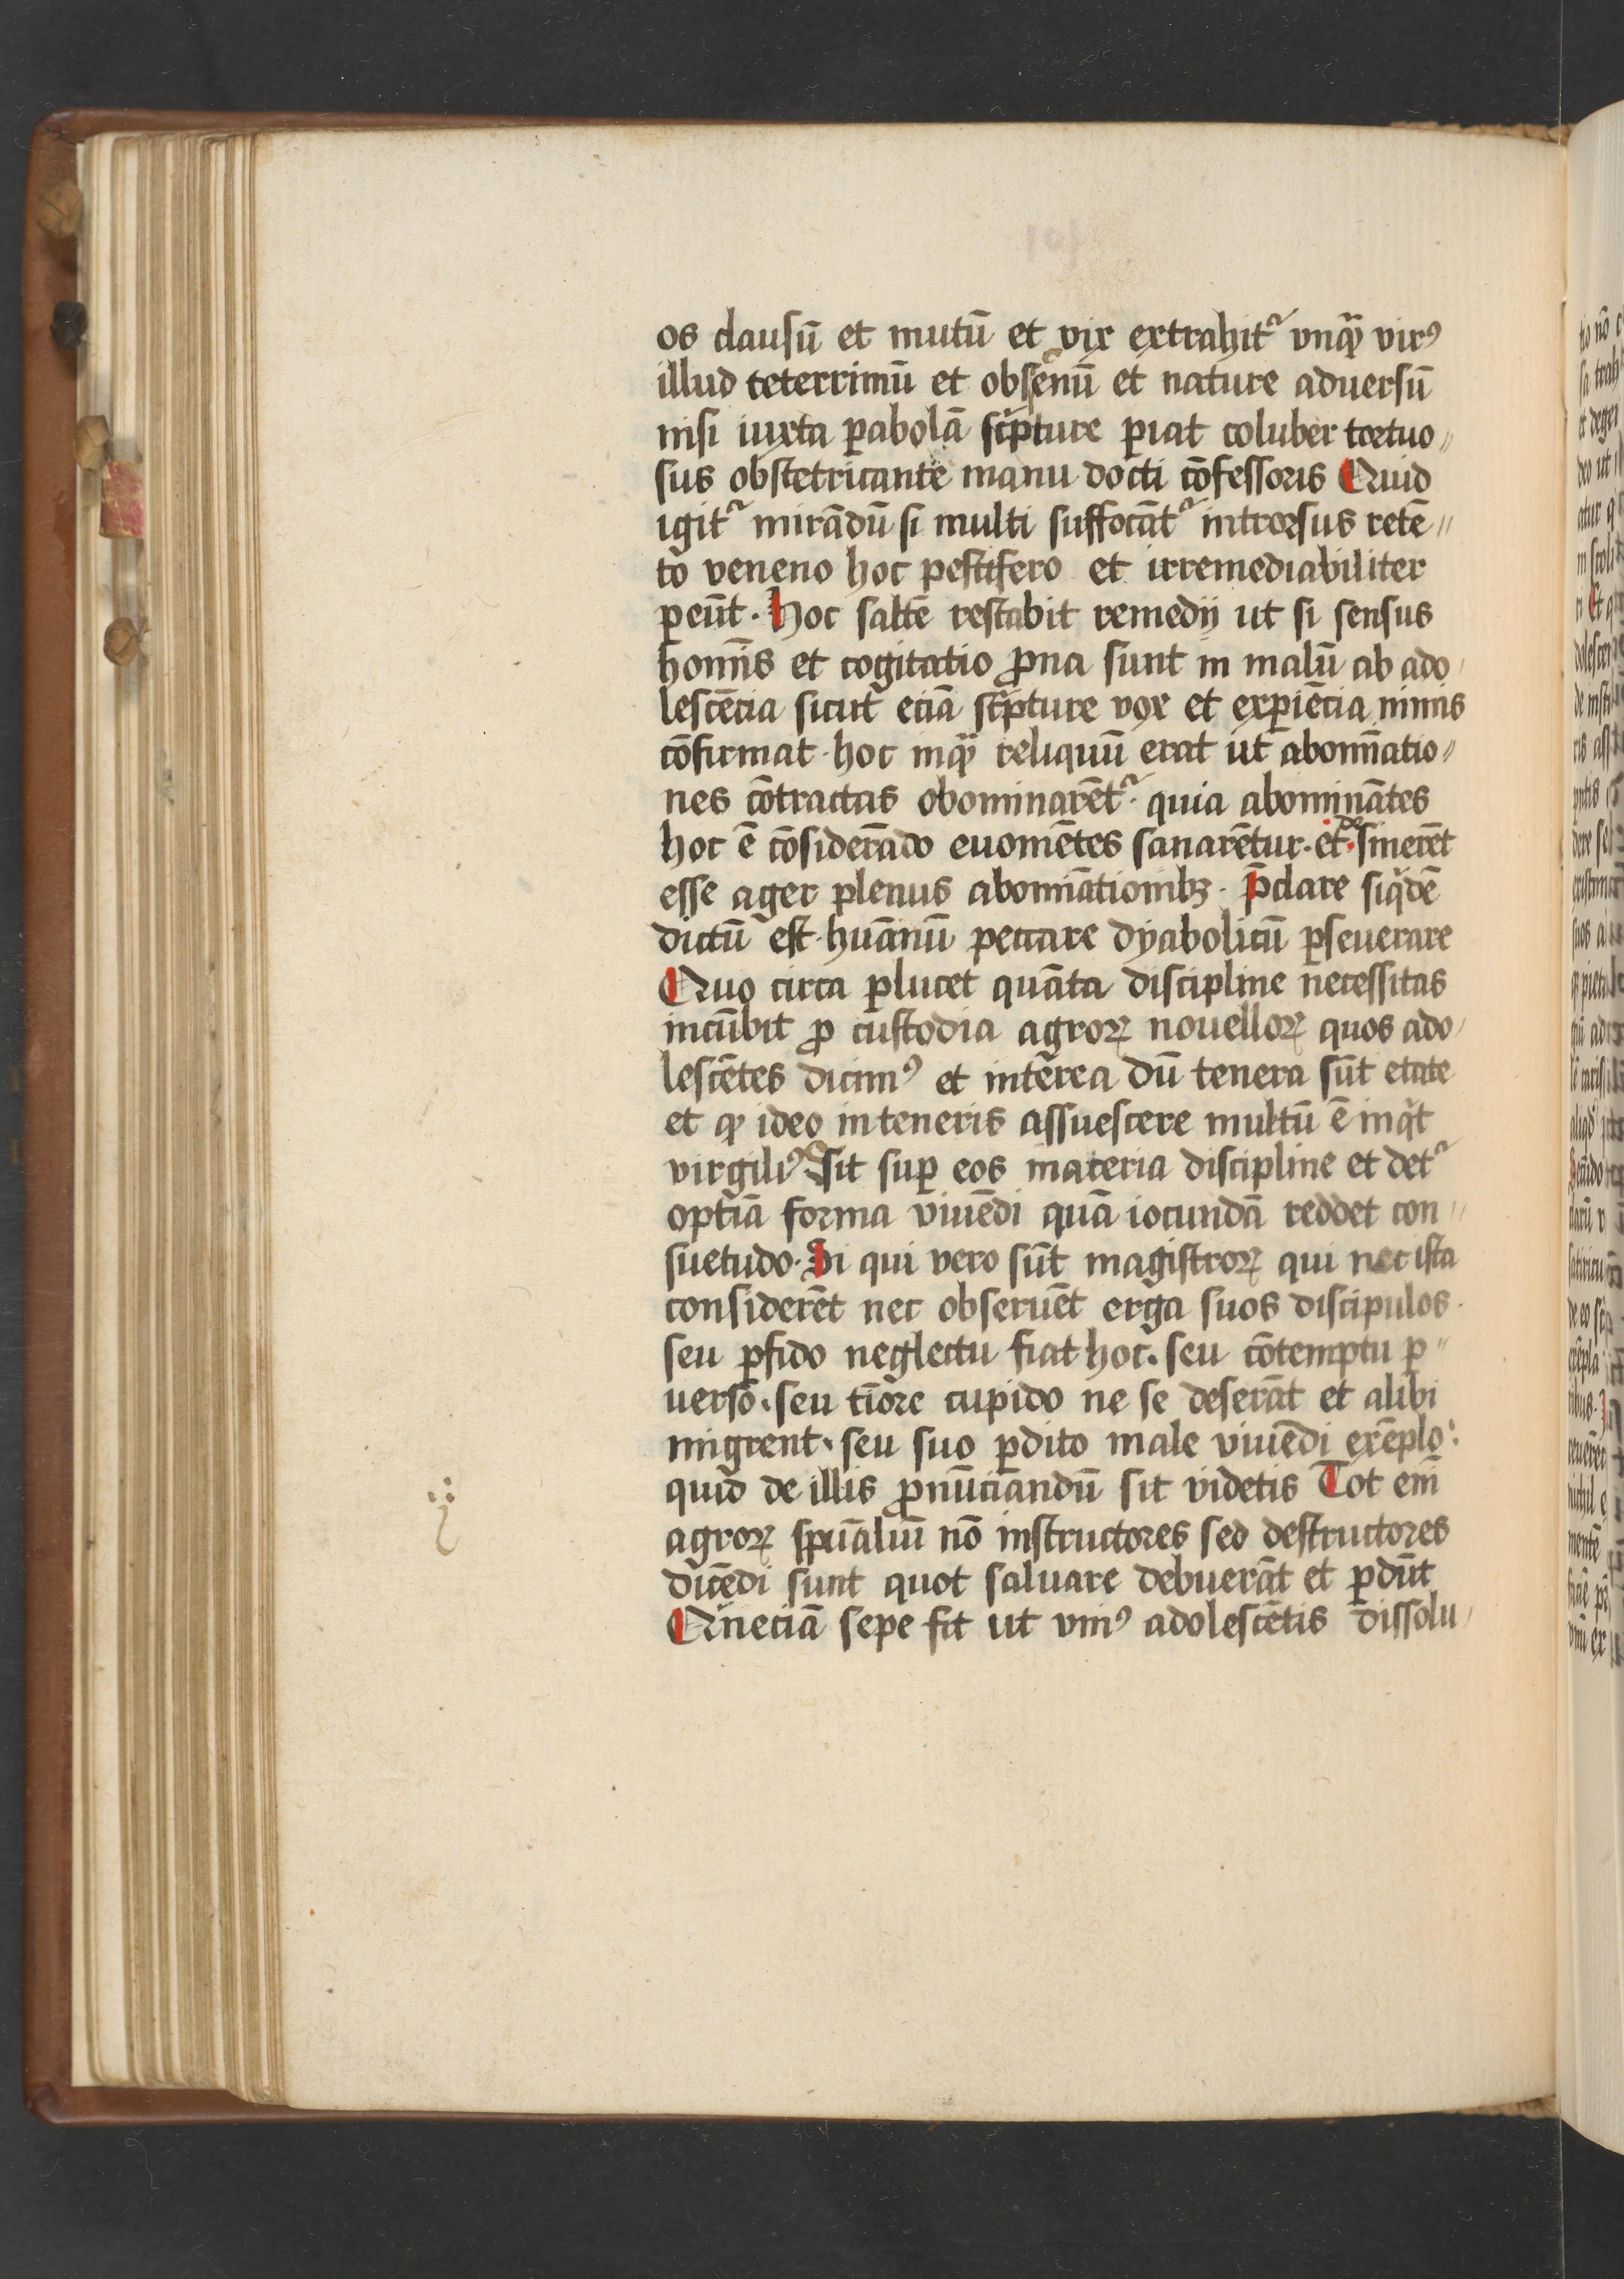 os clausū et mutū et vix extrahitᷣ vnqᷓ virꝰ
illud teterrimū et obscenū et nature aduersū
nisi iuxta ꝑabolā scͥpture ꝑiat coluber tortuo„
sus obstetricante manu docti cōfessoris Quid
igitᷣ mirādū si multi suffocātᷣ introrsus retē„
to veneno hoc pestifero et irremediabiliter
ꝑeūt · Hoc saltē restabit remedij ut si sensus
homīs et cogitatio ꝓna sunt in malū ab ado/
lescēcia sicut eciā scͥpture vox et exꝑiēcia nimis
cōfirmat · hoc inqᷓ reliquū erat ut abomīatio„
nes cōtractas obominarētᷣ · quia abominātes
hoc ē cōsiderādo euomētes sanarētur · et · desinerēt
esse ager plenus abomīationibꝫ · P̄clare siqͥdē
dictū est · huānū peccare dyabolicū ꝑseuerare
Quo circa ꝑlucet quāta discipline necessitas
incūbit ꝓ custodia agroꝝ nouelloꝝ quos ado/
lescētes dicimꝰ et interea dū tenera sūt etate
et qꝫ ideo in teneris assuescere multū ē inqͥt
virgiliꝰ Sit suꝑ eos materia discipline et detᷣ
optīa forma viuēdi quā iocundā reddet con„
suetudo · Si qui vero sūt magistroꝝ qui nec ista
considerēt nec obseruēt erga suos discipulos ·
seu ꝑfido neglectu fiat hoc · seu cōtemptu ꝑ„
uerso · seu tīore cupido ne se deserāt et alibi
migrent · seu suo ꝑdito male viuēdi exēplo :
quid de illis ꝓnūciandū sit videtis Tot enī
agroꝝ spūaliū nō instructores sed destructores
dicēdi sunt quot saluare debuerāt et ꝑdūt
Qīneciā sepe fit ut vniꝰ adolescētis dissolu/